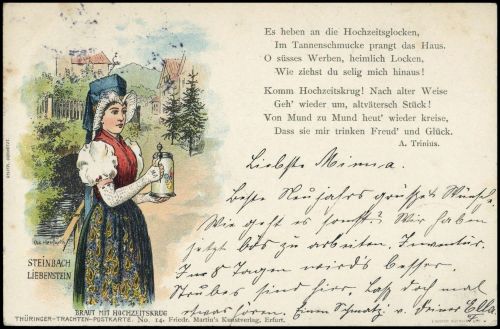 Es heben an die Hochzeitsglocken,
Im Tannenschmucke prangt das Haus.
O süsses Werben, heimlich Locken,
Wie ziehst du selig mich hinaus!
Komm Hochzeitskrug! Nach alter Weise
Geh' wieder um, altvätersch Stück!
Von Mund zu Mund heut' wieder kreise,
Dass sie mir trinken Freud' und Glück.
A. Trinius.
Liebste Minna.
Beste Neujahrsgrüsse u. Wünsche.
Wie geht es sonst? Wir haben
jetzt bös zu arbeiten. Inventur.
In 8 Tagen wird's besser.
Strubes sind hier, lass doch mal
etwas hören. Einen Schmatz v. Deiner Ella
STEINBACH
LIEBENSTEIN
BRAUT MIT HOCHZEITSKRUG
THÜRINGER-TRACHTEN-POSTKARTE. No. 14. Friedr. Martin's Kunstverlag, Erfurt.